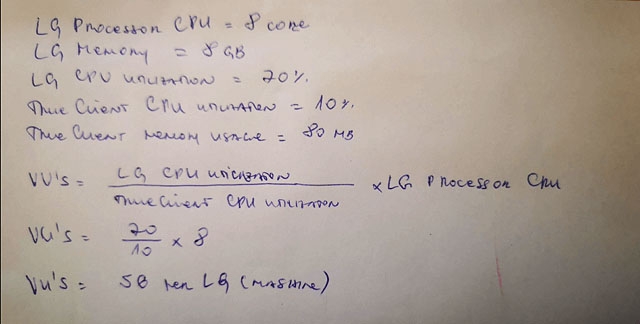 LG Processor CPU = 8 core
LG Memory = 8 GB
LG CPU utilization = 70%
True Client CPU utilization = 10%
True Client memory usage = 80 MB
VU's = LG CPU utilization / True Client CPU utilization × LG Processor CPU
VU's = 70/10 × 8
VU's = 56 per LG (Mashine)